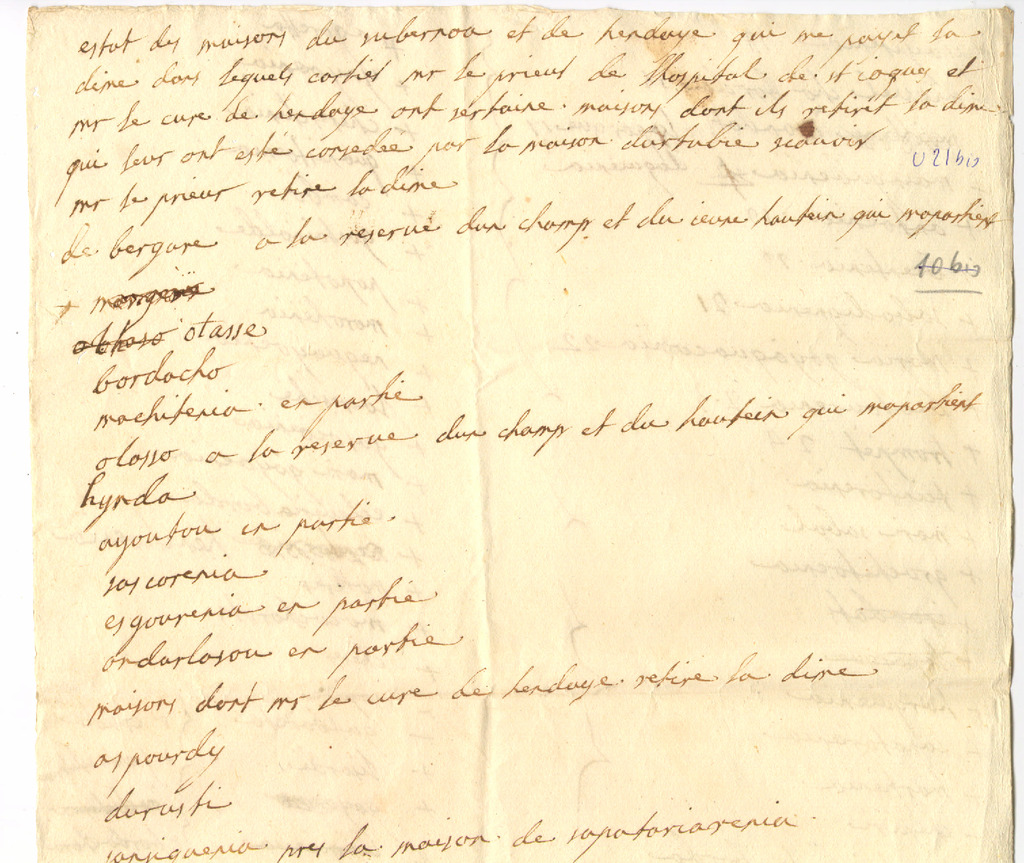 estat des maisons du subernoa et de hendaye qui me payet la
dime dans lequels carties mr le prieur de lhospital de st jaques et
mr le cure de hendaye ont sertaine maisons dont ils retiret la dime
qui leur ont esté consedee par la maison durtubie scavoir
U 21 bis
mr le prieur retire la dime
de bergare a la reserve dun champ et du jeune hautein qui mapartient
10 bis
+
otasse
bordacho
machitenia en partie
olasso a la reserve dun champ et du hautein qui mapartient
hynda
ayoutou en partie
sascorenia
esgourenia en partie
ondarlasou en partie
maisons dont mr le cure de hendaye retire la dime
aspourdy
durusti
sansiguenia pres la maison de sapatariarenia